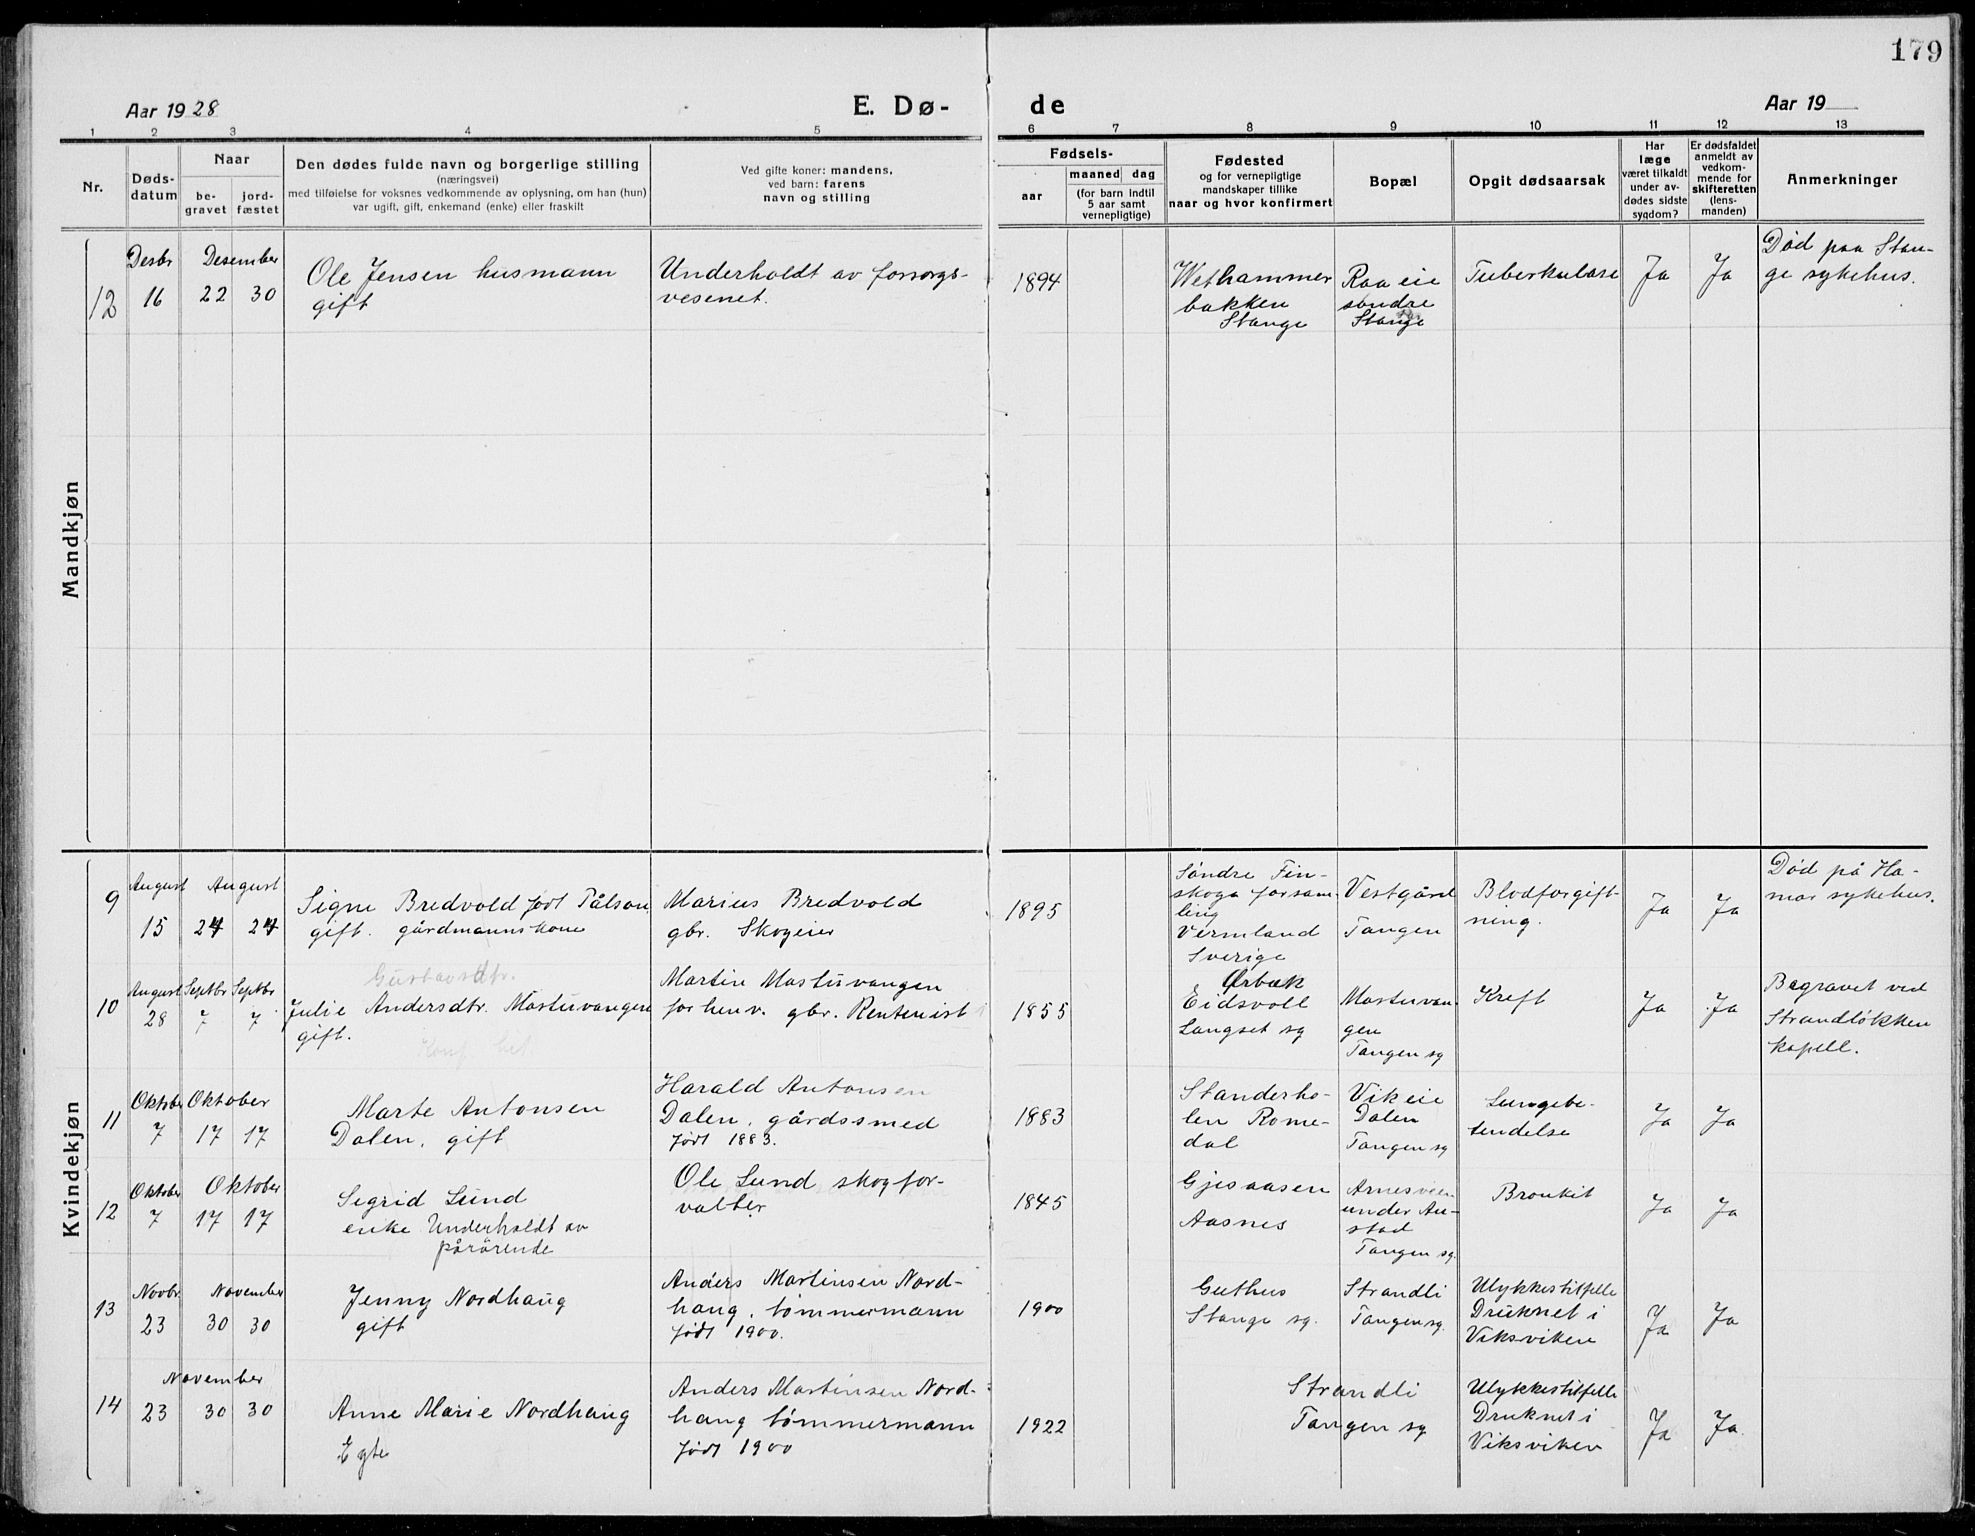 179
Aar 1928
E. Dø-
de
Aar 19
1 2 3 4 5 6 7 8 9 10 11 12 13
Nr.
Døds-
datum
Naar
be-
gravet
jord-
fæstet
Den dødes fulde navn og borgerlige stilling
(næringsvei)
med tilføielse for voksnes vedkommende av oplysning, om han (hun)
var ugift, gift, enkemand (enke) eller fraskilt
Ved gifte koner: mandens,
ved barn: farens
navn og stilling
Fødsels-
aar
maaned dag
(for barn indtil
5 aar samt
vernepligtige)
Fødested
og for vernepligtige
mandskaper tillike
naar og hvor konfirmert
Bopæl
Opgit dødsaarsak
Har
læge
været tilkaldt
under av-
dødes sidste
sygdom?
Er dødsfaldet
anmeldt av
vedkom-
mende for
skifteretten
(lens-
manden)
Anmerkninger
Mandkjøn
12
Desbr
16
Desember
22 30
Ole Jensen husmann
gift
Underholdt av forsorgs-
vesenet.
1894
Wethammer
bakken
Stange
Raa eie
søndre
Stange
Tuberkulose
Ja
Ja
Død paa Stan-
ge sykehus.
Kvindekjøn
9
August
15
August
24 24
Signe Bredvold født Pålson
gift. gårdmannskone
Marius Bredvold
gbr. Skogeier
1895
Søndre Fin-
skoga forsam-
ling
Vermland
Sverige
Vestgård
Tangen
Blodforgift-
ning.
Ja
Ja
Død på Ha-
mar sykehus.
10
August
28
Septbr
7
Septbr
7
Gustavsdtr.
Julie Andersdtr. Mastuvangen
gift.
Martin Mastuvangen
forhenv. gbr. Rentenist
1855
Ørbæk
Eidsvoll
Langset sg
Mastuvan-
gen
Tangen sg
Kreft
Ja
Ja
Begravet ved
Strandløkken
kapell.
11
Oktober
7
Oktober
17 17
Marte Antonsen
Dalen, gift
Harald Antonsen
Dalen, gårdssmed
født 1883.
1883
Standerho-
len Rome-
dal
Vik eie
Dalen
Tangen sg
Lungebe-
tendelse
Ja
Ja
12
Oktober
7
Oktober
17 17
Sigrid Lund
enke Underholdt av
pårørende
Ole Lund skogfor-
valter
1845
Gjesaasen
Aasnes
Arnesveen
under Au-
stad
Tangen sg.
Bronkit
Ja
Ja
13
Novbr.
23
November
30 30
Jenny Nordhaug
gift
Anders Martinsen Nord-
haug, tømmermann
født 1900.
1900
Guthus
Stange sg.
Strandli
Tangen sg.
Ulykkestilfelle
Druknet i
Viksviken
Ja
Ja
14
November
23 30 30
Anne Marie Nordhaug
Egte
Anders Martinsen Nord-
haug tømmermann
født 1900
1922
Strandli
Tangen sg
Ulykkestilfelle
Druknet i
Viksviken
Ja
Ja